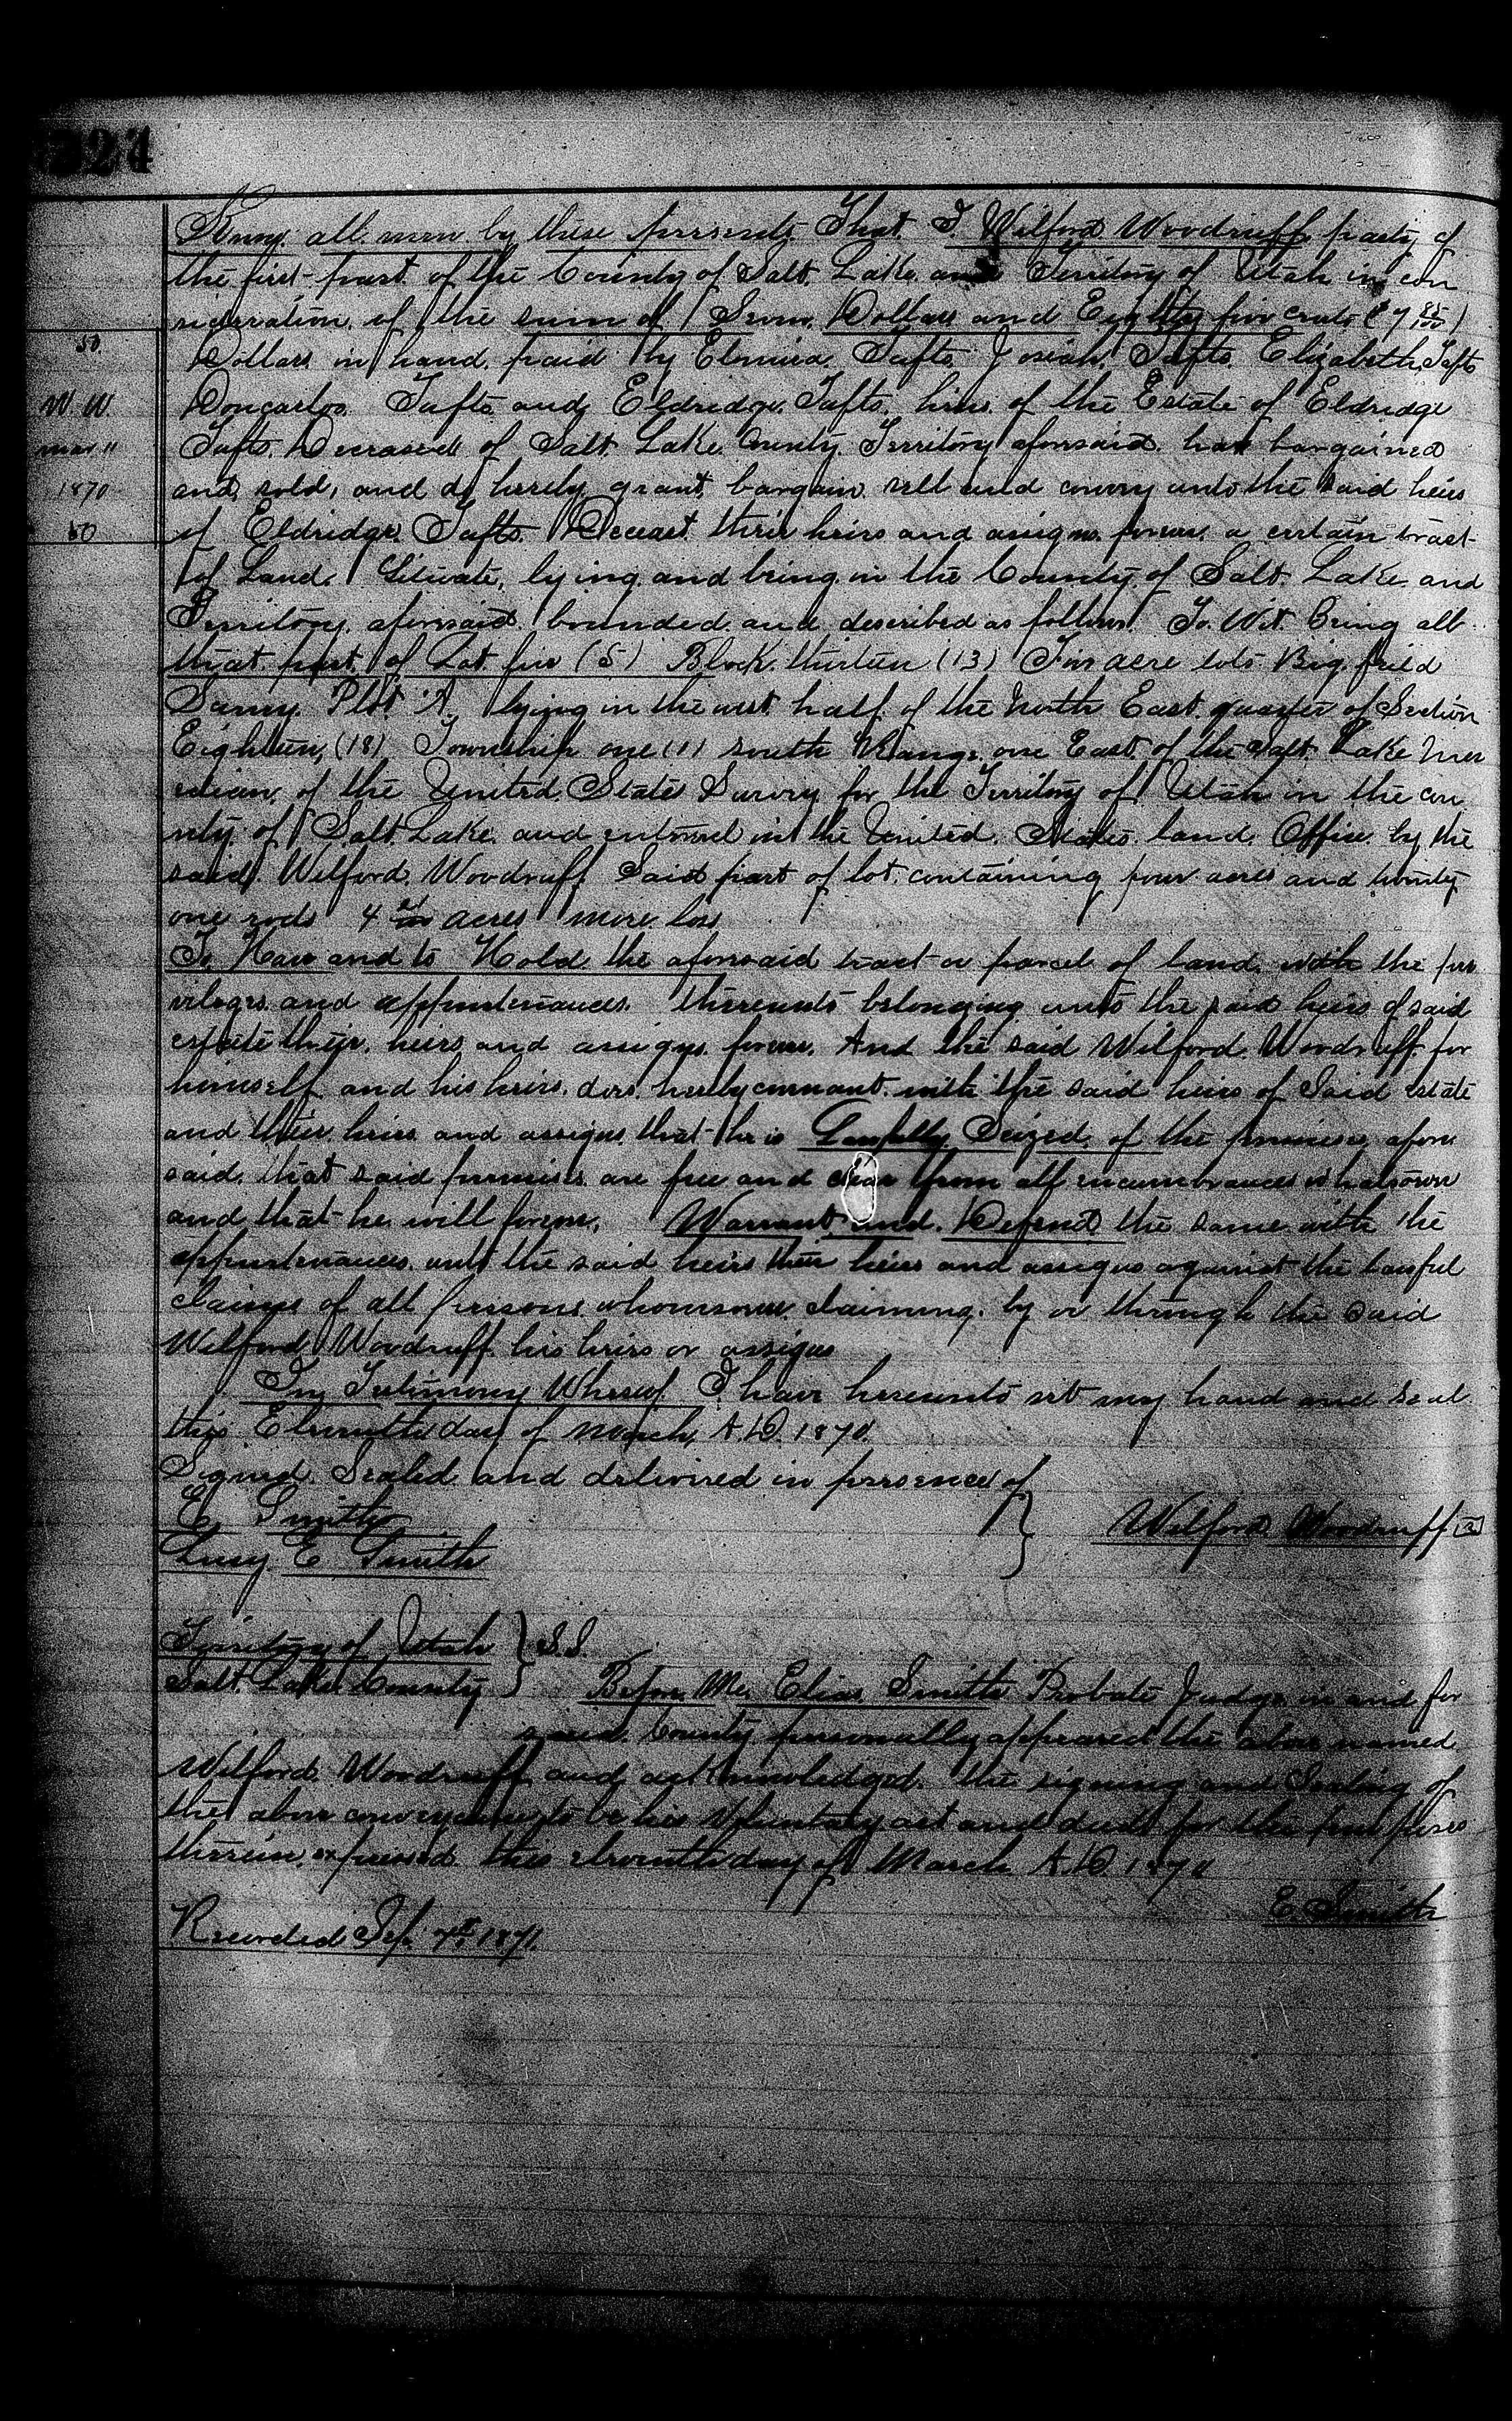 324
Know all men by these presents That I Wilford Woodruff party of
the first part of the County of Salt Lake and Territory of Utah in con
sideration of the sum of Seven Dollars and Eighty five cents ($7 85/100)
50.
Dollars in hand paid by Elmira Tufts Josiah Tufts Elizabeth Tufts
W. W.
Doncarlos Tufts and Eldredge Tufts heirs of the Estate of Eldredge
mar 11
Tufts Deceased of Salt Lake County Territory aforesaid has bargained
1870
and sold, and do hereby grant bargain sell and convey unto the said heirs
50
of Eldridge Tufts Deceast their heirs and assigns forever a certain tract
of Land Situate, lying and being in the County of Salt Lake and
Territory aforesaid bounded and described as follows To Wit. Being all
that part of Lot five (5) Block thirteen (13) Five acre lots Big field
Survey Plot A lying in the west half of the North East quarter of Section
Eighteen (18) Township one (1) south Range one East of the Salt Lake Mer
edian of the United State Survey for the Territory of Utah in the cou
nty of Salt Lake and entered in the United States land Office by the
said Wilford Woodruff Said part of lot containing four acres and twenty
one rods 4 acres more less
To Have and to Hold the aforesaid tract or parcel of land with the pri
vileges and appurtenances thereunto belonging unto the said heirs of said
estate their heirs and assigns forever. And the said Wilford Woodruff for
himself and his heirs does hereby covenant with the said heirs of Said estate
and their heirs and assigns that he is Lawfully Seized of the premises afore
said that said premises are free and clear from all incumbrances whatsoever
and that he will forever Warrant and Defend the same with the
appurtenances unto the said heirs their heirs and assigns against the lawful
claims of all persons whomsoever claiming by or through the Said
Wilford Woodruff his heirs or assigns
In Testimony Whereof I have hereunto set my hand and seal
this Eleventh day of March A.D. 1870.
Signed Sealed and delivered in presence of
E. Smith
Wilford Woodruff
Lucy E Smith
Territory of Utah } S.S.
Salt Lake County
Before Me Elias Smith Probate Judge in and for
said County personally appeared the above named
Wilford Woodruff and acknowledged the signing and Sealing of
the above conveyance to be his Voluntary act and deed for the purposes
therein expressed this eleventh day of March A.D. 1870
E. Smith
Recorded Sep. 7th 1871.